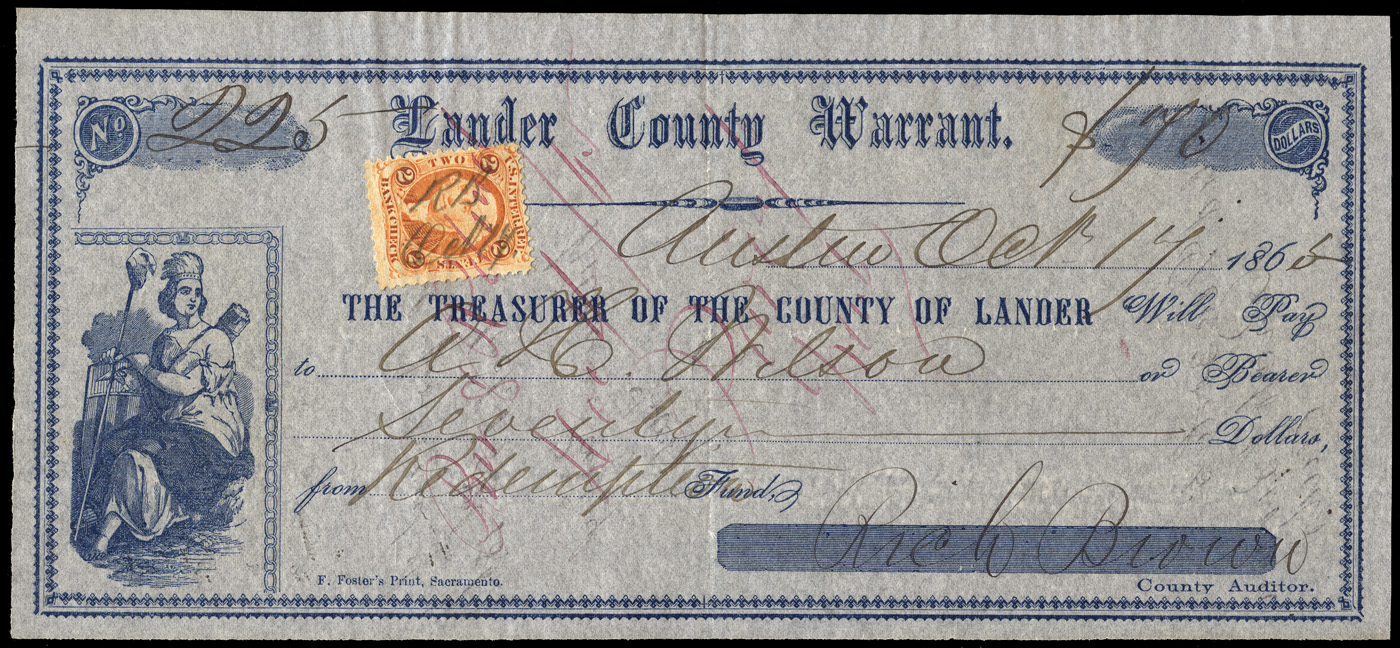 No 225 Lander County Warrant. $70 DOLLARS
U.S. INTER. REV.
TWO
2 2 2 2
BANK CHECK
CENTS
RB
Oct 17
Austin Oct 17 1865
THE TREASURER OF THE COUNTY OF LANDER Will Pay
to A. H. Wilson or Bearer
Seventy Dollars,
from Redemption Fund,
Rich Brown
County Auditor.
F. Foster's Print, Sacramento.